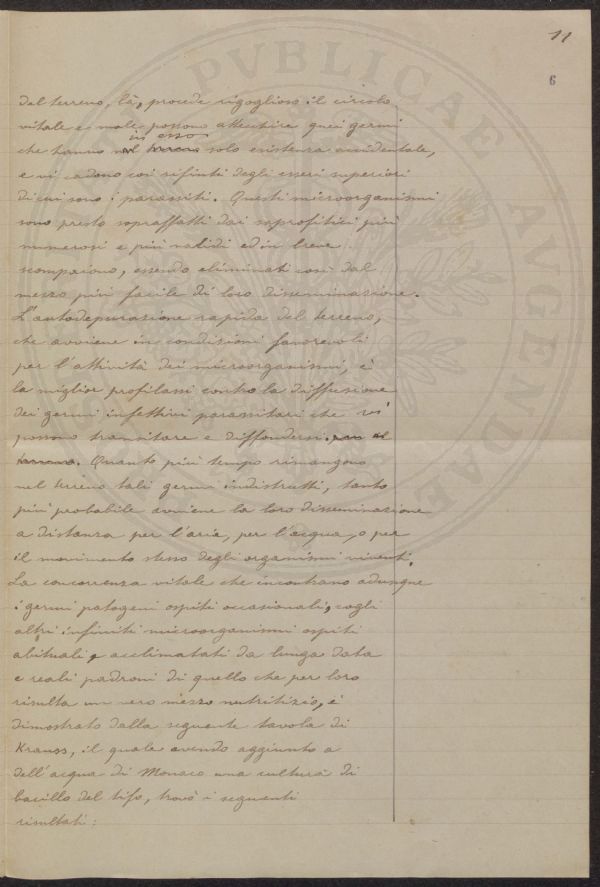 11
6
PVBLICAE AVGENDAE
dal terreno, là, procede rigoglioso il circolo
vitale e male possono attecchire quei germi
in esso
che hanno nel terreno solo esistenza accidentale,
e vi cadono coi rifiuti degli esseri superiori
di cui sono i parassiti. Questi microorganismi
sono presto sopraffatti dai saprofitici più
numerosi e più validi ed in breve
scompaiono, essendo eliminati così dal
mezzo più facile di loro disseminazione.
L'autodepurazione rapida del terreno,
che avviene in condizioni favorevoli
per l'attività dei microorganismi, è
la miglior profilassi contro la diffusione
dei germi infettivi parassitari che vi
possono transitare e diffondersi. con il
terreno. Quanto più tempo rimangono
nel terreno tali germi indistrutti, tanto
più probabile avviene la loro disseminazione
a distanza per l'aria, per l'acqua, o per
il movimento stesso degli organismi viventi.
La concorrenza vitale che incontrano adunque
i germi patogeni ospiti occasionali, cogli
altri infiniti microorganismi ospiti
abituali, acclimatati da lunga data
e reali padroni di quello che per loro
risulta un vero mezzo nutritizio, è
dimostrato dalla seguente tavola di
Krauss, il quale avendo aggiunto a
dell'acqua di Monaco una cultura di
bacillo del tifo, trovò i seguenti
risultati: